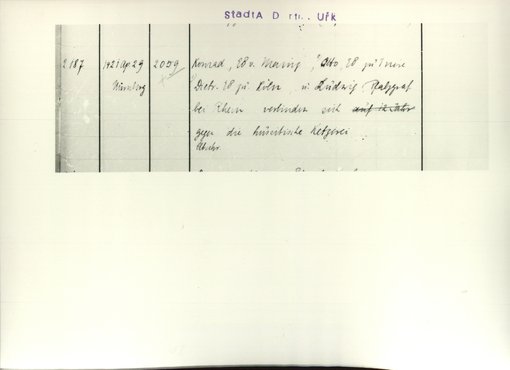 StadtA D Urk
2187 1421 Apr 29 2009 Konrad, EB v. Mainz, Otto EB zu Trier
Nürnberg Dietr. EB zu Köln, u. Ludwig Pfalzgraf
bei Rhein verbinden sich auf
gegen die hussitische Ketzerei
Abschr.